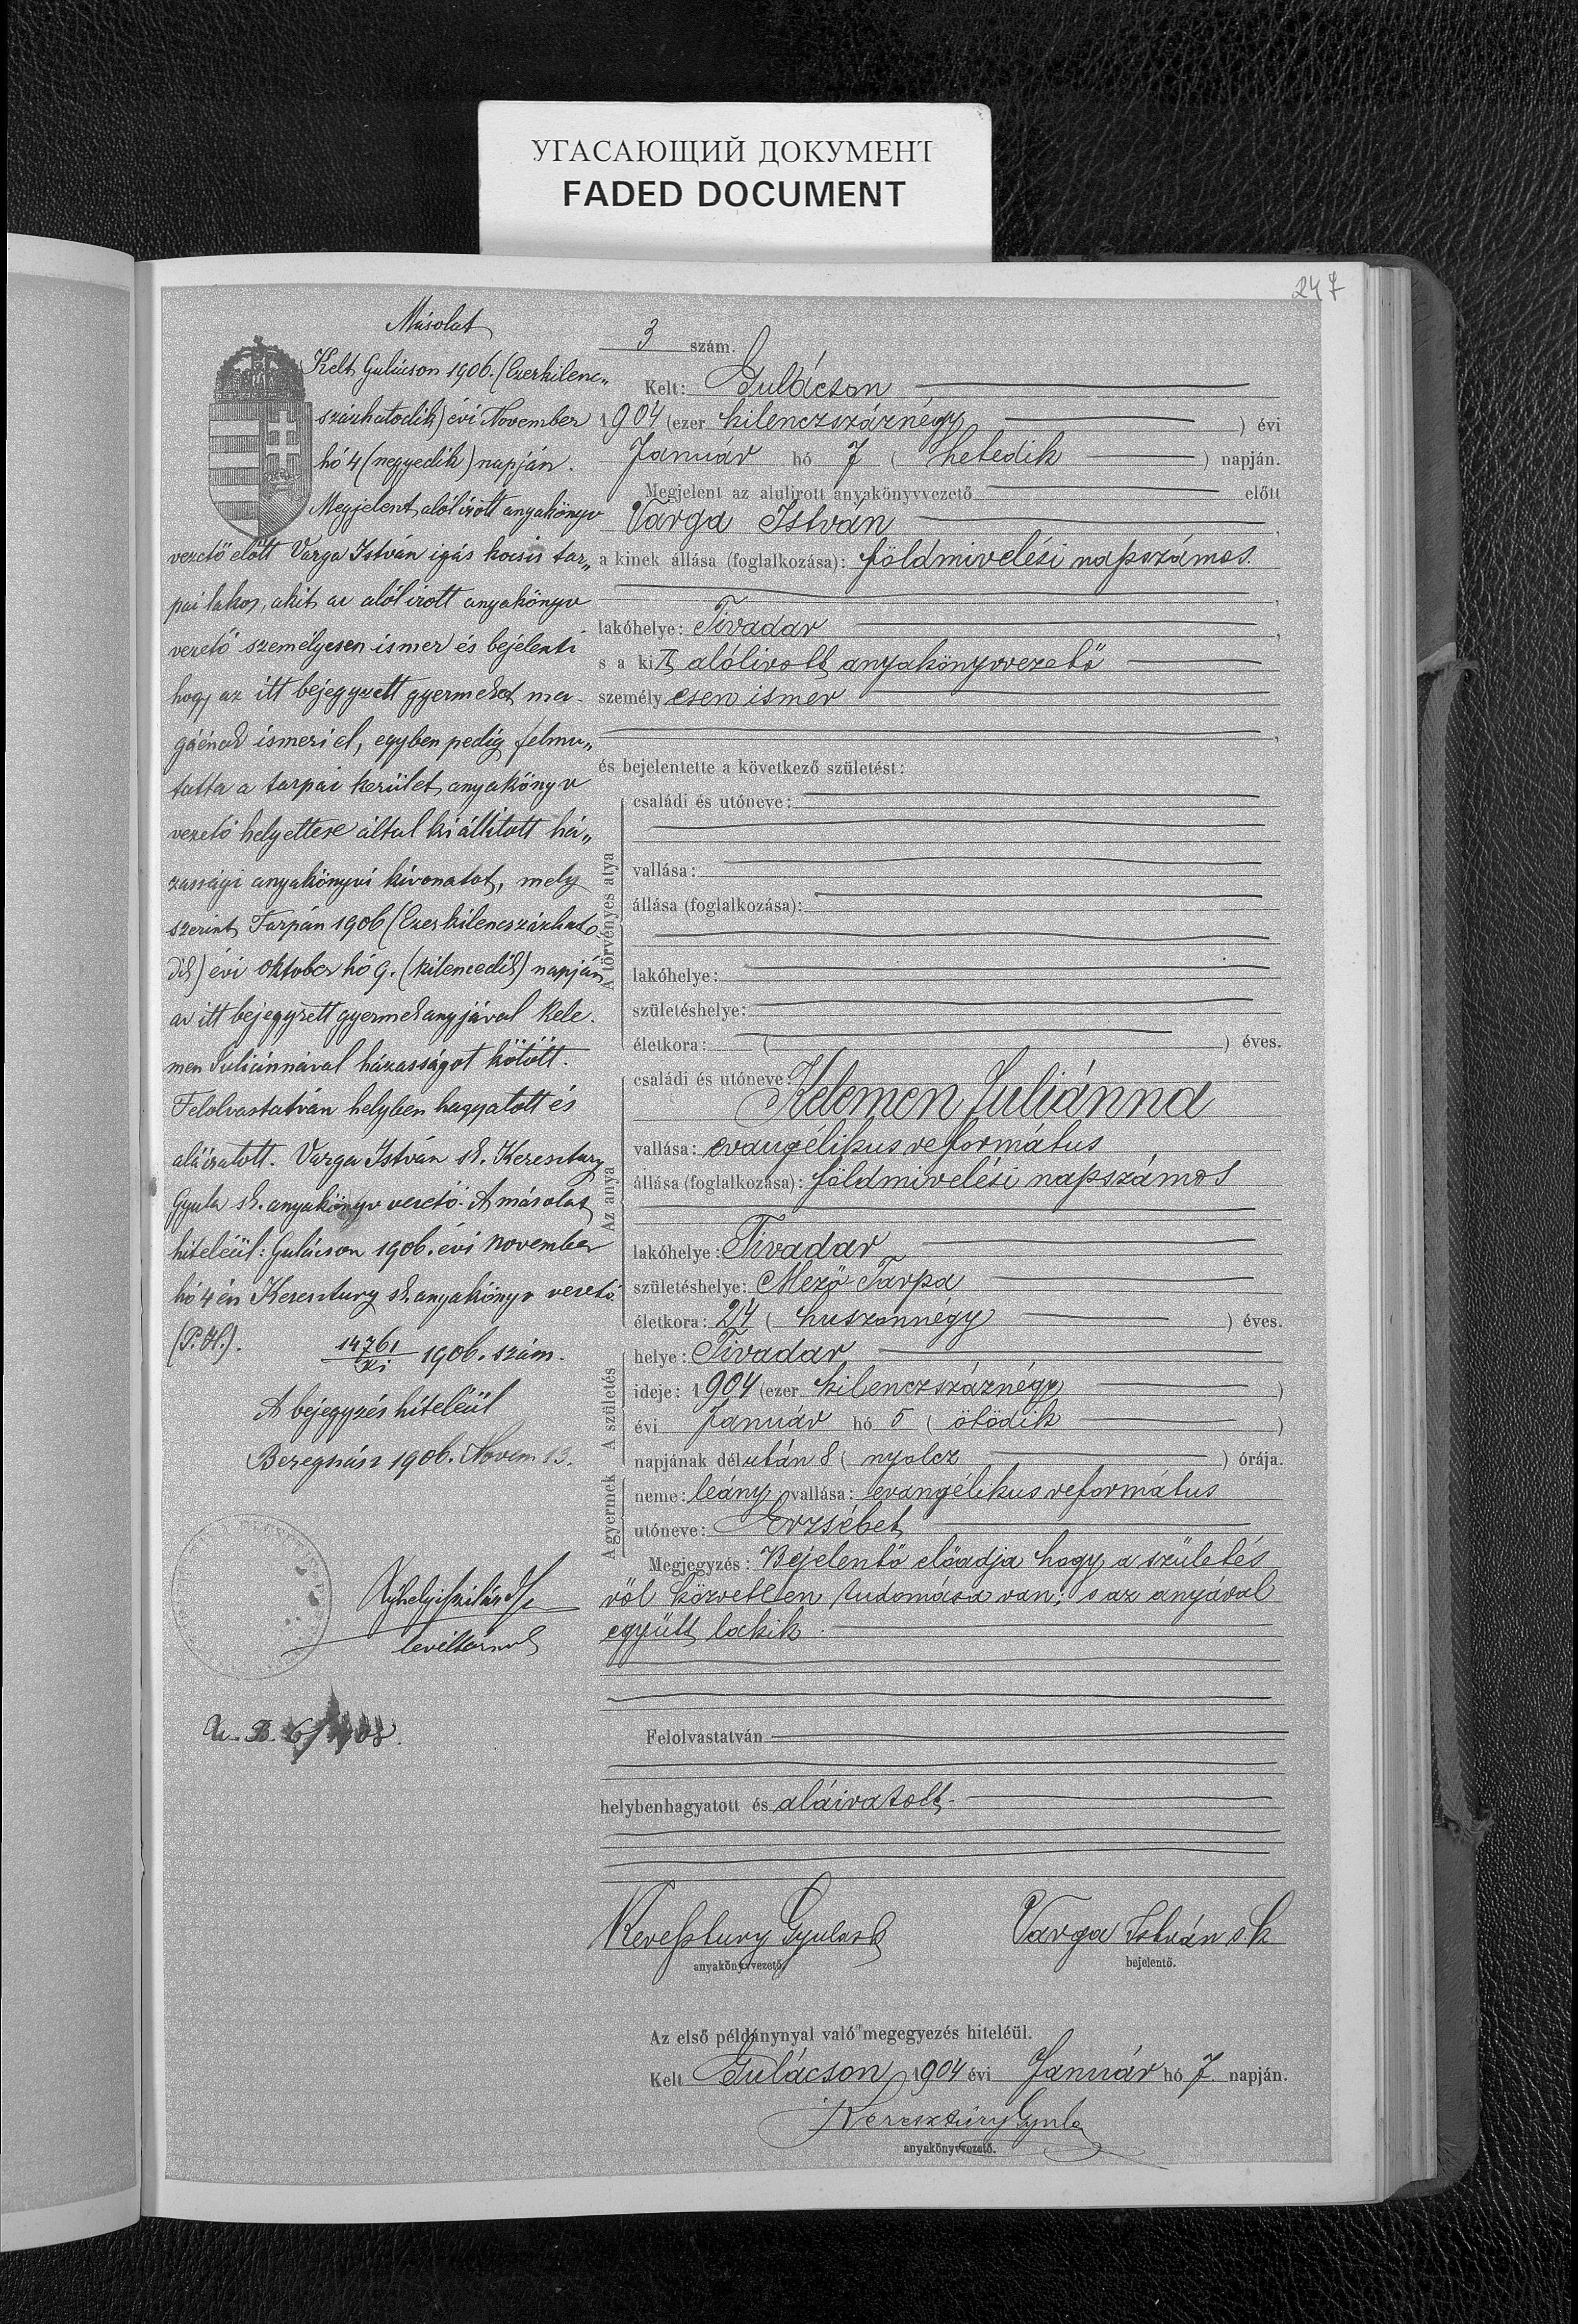 УГАСАЮЩИЙ ДОКУМЕНТ
FADED DOCUMENT
247
Másolat
Kelt Gulácson 1906. (Ezerkilenc„
százhatodik) évi November
hó 4 (negyedik) napján.
Megjelent alólirott anyakönyv
vezető előtt Varga István igás kocsis tar„
pai lakos, akit az alólirott anyakönyv
vezető személyesen ismer és bejelenti
hogy az itt bejegyzett gyermeket ma-
gáénak ismeri el, egyben pedig felmu„
tatta a tarpai kerület anyakönyv
vezető helyettese által kiállitott há„
zassági anyakönyvi kivonatot, mely
szerint Tarpán 1906 (Ezerkilencszázhato
dik) évi oktober hó 9. (kilencedik) napján
az itt bejegyzett gyermek anyjával Kele-
men Juliánnával házasságot kötött.
Felolvastatván helyben hagyatott és
aláiratott. Varga István sk. Keresztury
Gyula sk. anyakönyv vezető. A másolat
hiteléül: Gulácson 1906. évi november
hó 4 én Keresztury sk. anyakönyv vezető.
(P.H.). 14761/XI 1906. szám.
A bejegyzés hiteléül
Beregszász 1906. Novem 13.
levéltárnok
3 szám.
Kelt: Gulácson
1904 (ezer kilenczszáznégy ) évi
Január hó 7 ( hetedik ) napján.
Megjelent az alulirott anyakönyvvezető előtt
Varga István ,
a kinek állása (foglalkozása): földmivelési napszámos.
,
lakóhelye: Tivadar ,
s a kit alólirott anyakönyvvezető
személyesen ismer
,
és bejelentette a következő születést:
A törvényes atya
családi és utóneve:
vallása:
állása (foglalkozása):
lakóhelye:
születéshelye:
életkora: ( ) éves.
Az anya
családi és utóneve: Kelemen Juliánna
vallása: evangélikus református
állása (foglalkozása): földmivelési napszámos
lakóhelye: Tivadar
születéshelye: Mező Tarpa
életkora: 24 ( huszonnégy ) éves.
A születés
helye: Tivadar
ideje: 1904 (ezer kilenczszáznégy )
évi Január hó 5 ( ötödik )
napjának délután 8 ( nyolcz ) órája.
A gyermek
neme: leány vallása: evangélikus református
utóneve: Erzsébet
Megjegyzés: Bejelentő előadja hogy a születés
ről közvetlen tudomása van; s az anyával
együtt lakik.
Felolvastatván
helybenhagyatott és aláiratott.
Keresztury Gyula sk Varga István sk
anyakönyvvezető. bejelentő.
Az első példánynyal való megegyezés hiteléül.
Kelt Gulácson, 1904 évi Január hó 7. napján.
Keresztúry Gyula
anyakönyvvezető.